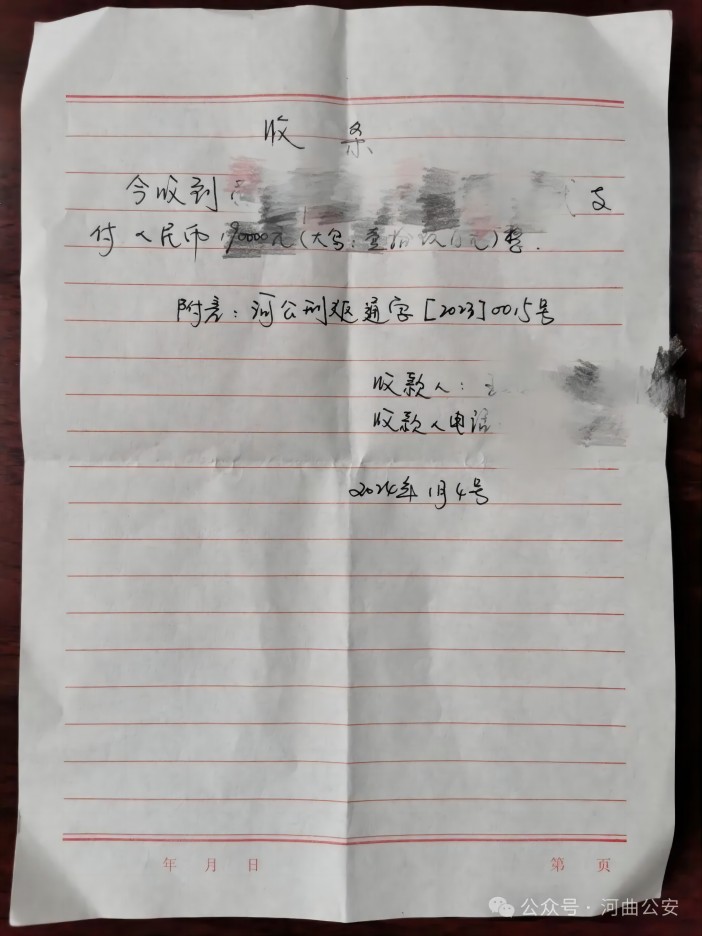 收条
今收到 支
付人民币190000元(大写:壹拾玖万元)整.
附意:河公刑冤通字[2023]0015号
收款人:
收款人电话
2024年1月4号
年 月 日 第 页
公众号·河曲公安